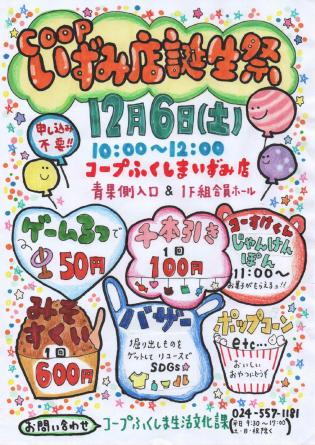 coop
いずみ店誕生祭
申し込み
不要!!
12月6日(土)
10:00～12:00
コープふくしまいずみ店
青果側入口 & 1F組合員ホール
ゲームるつで
50円
千本引き
1回
100円
コーすけくん
じゃんけん
ぽん
11:00～
お菓子がもらえるョ!!
みそ
すくい
1回
600円
バザー
掘り出しものを
ゲットして リユースで
SDGs
ポップコーン
etc...
おいしい
おやつもどうぞ
お問い合わせ
コープふくしま生活文化課
024-557-1181
(平日 9:30～17:00)
土・日・祝除く